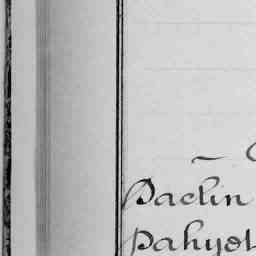 Paclin
Pahyot